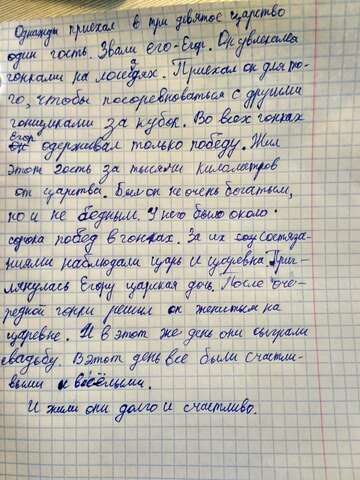 Однажды приехал в три девятое царство
один гость. Звали его-Егор. Он увлекался
гонками на лошадях. Приехал он для то-
го, чтобы посоревноваться с другими
гонщиками за кубок. Во всех гонках
Егор одерживал только победу. Жил
этот гость за тысячи километров
от царства. Был он не очень богатым,
но и не бедным. У него было около
сорока побед в гонках. За их состяза-
ниями наблюдали царь и царевна. Приг-
лянулась Егору царская дочь. После оче-
редной гонки решил он жениться на
царевне. И в этот же день они сыграли
свадьбу. В этот день все были счастли-
выми и весёлыми.
И жили они долго и счастливо.